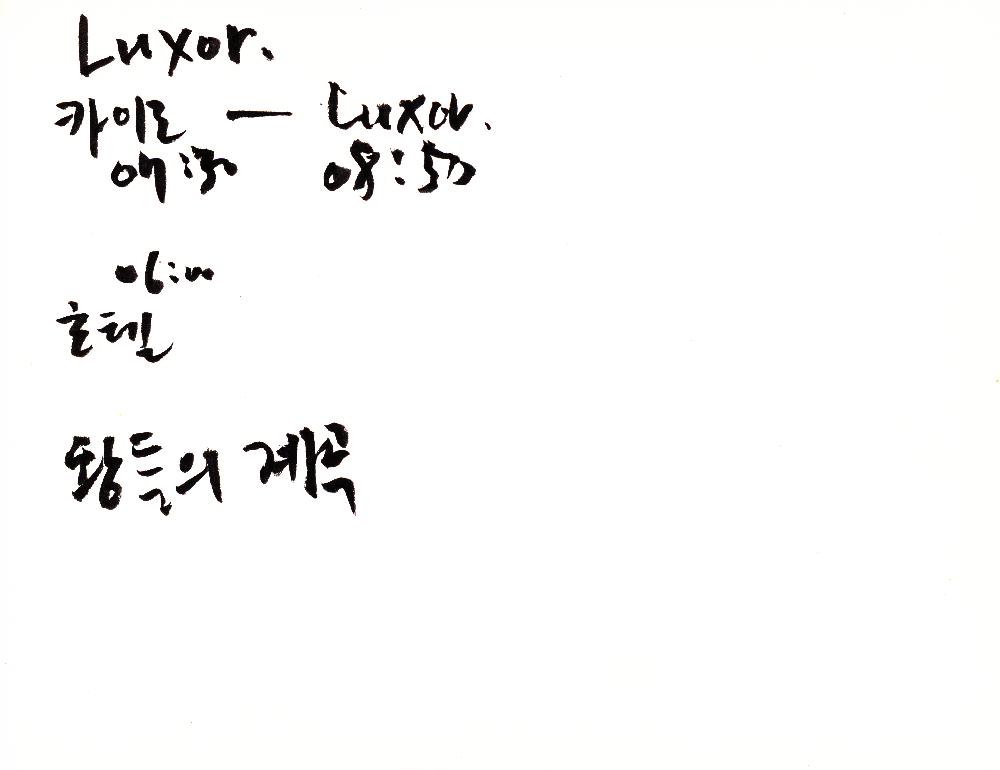 Luxor.
카이로 — Luxor.
07:30 08:50
06:00
호텔
왕들의 계곡